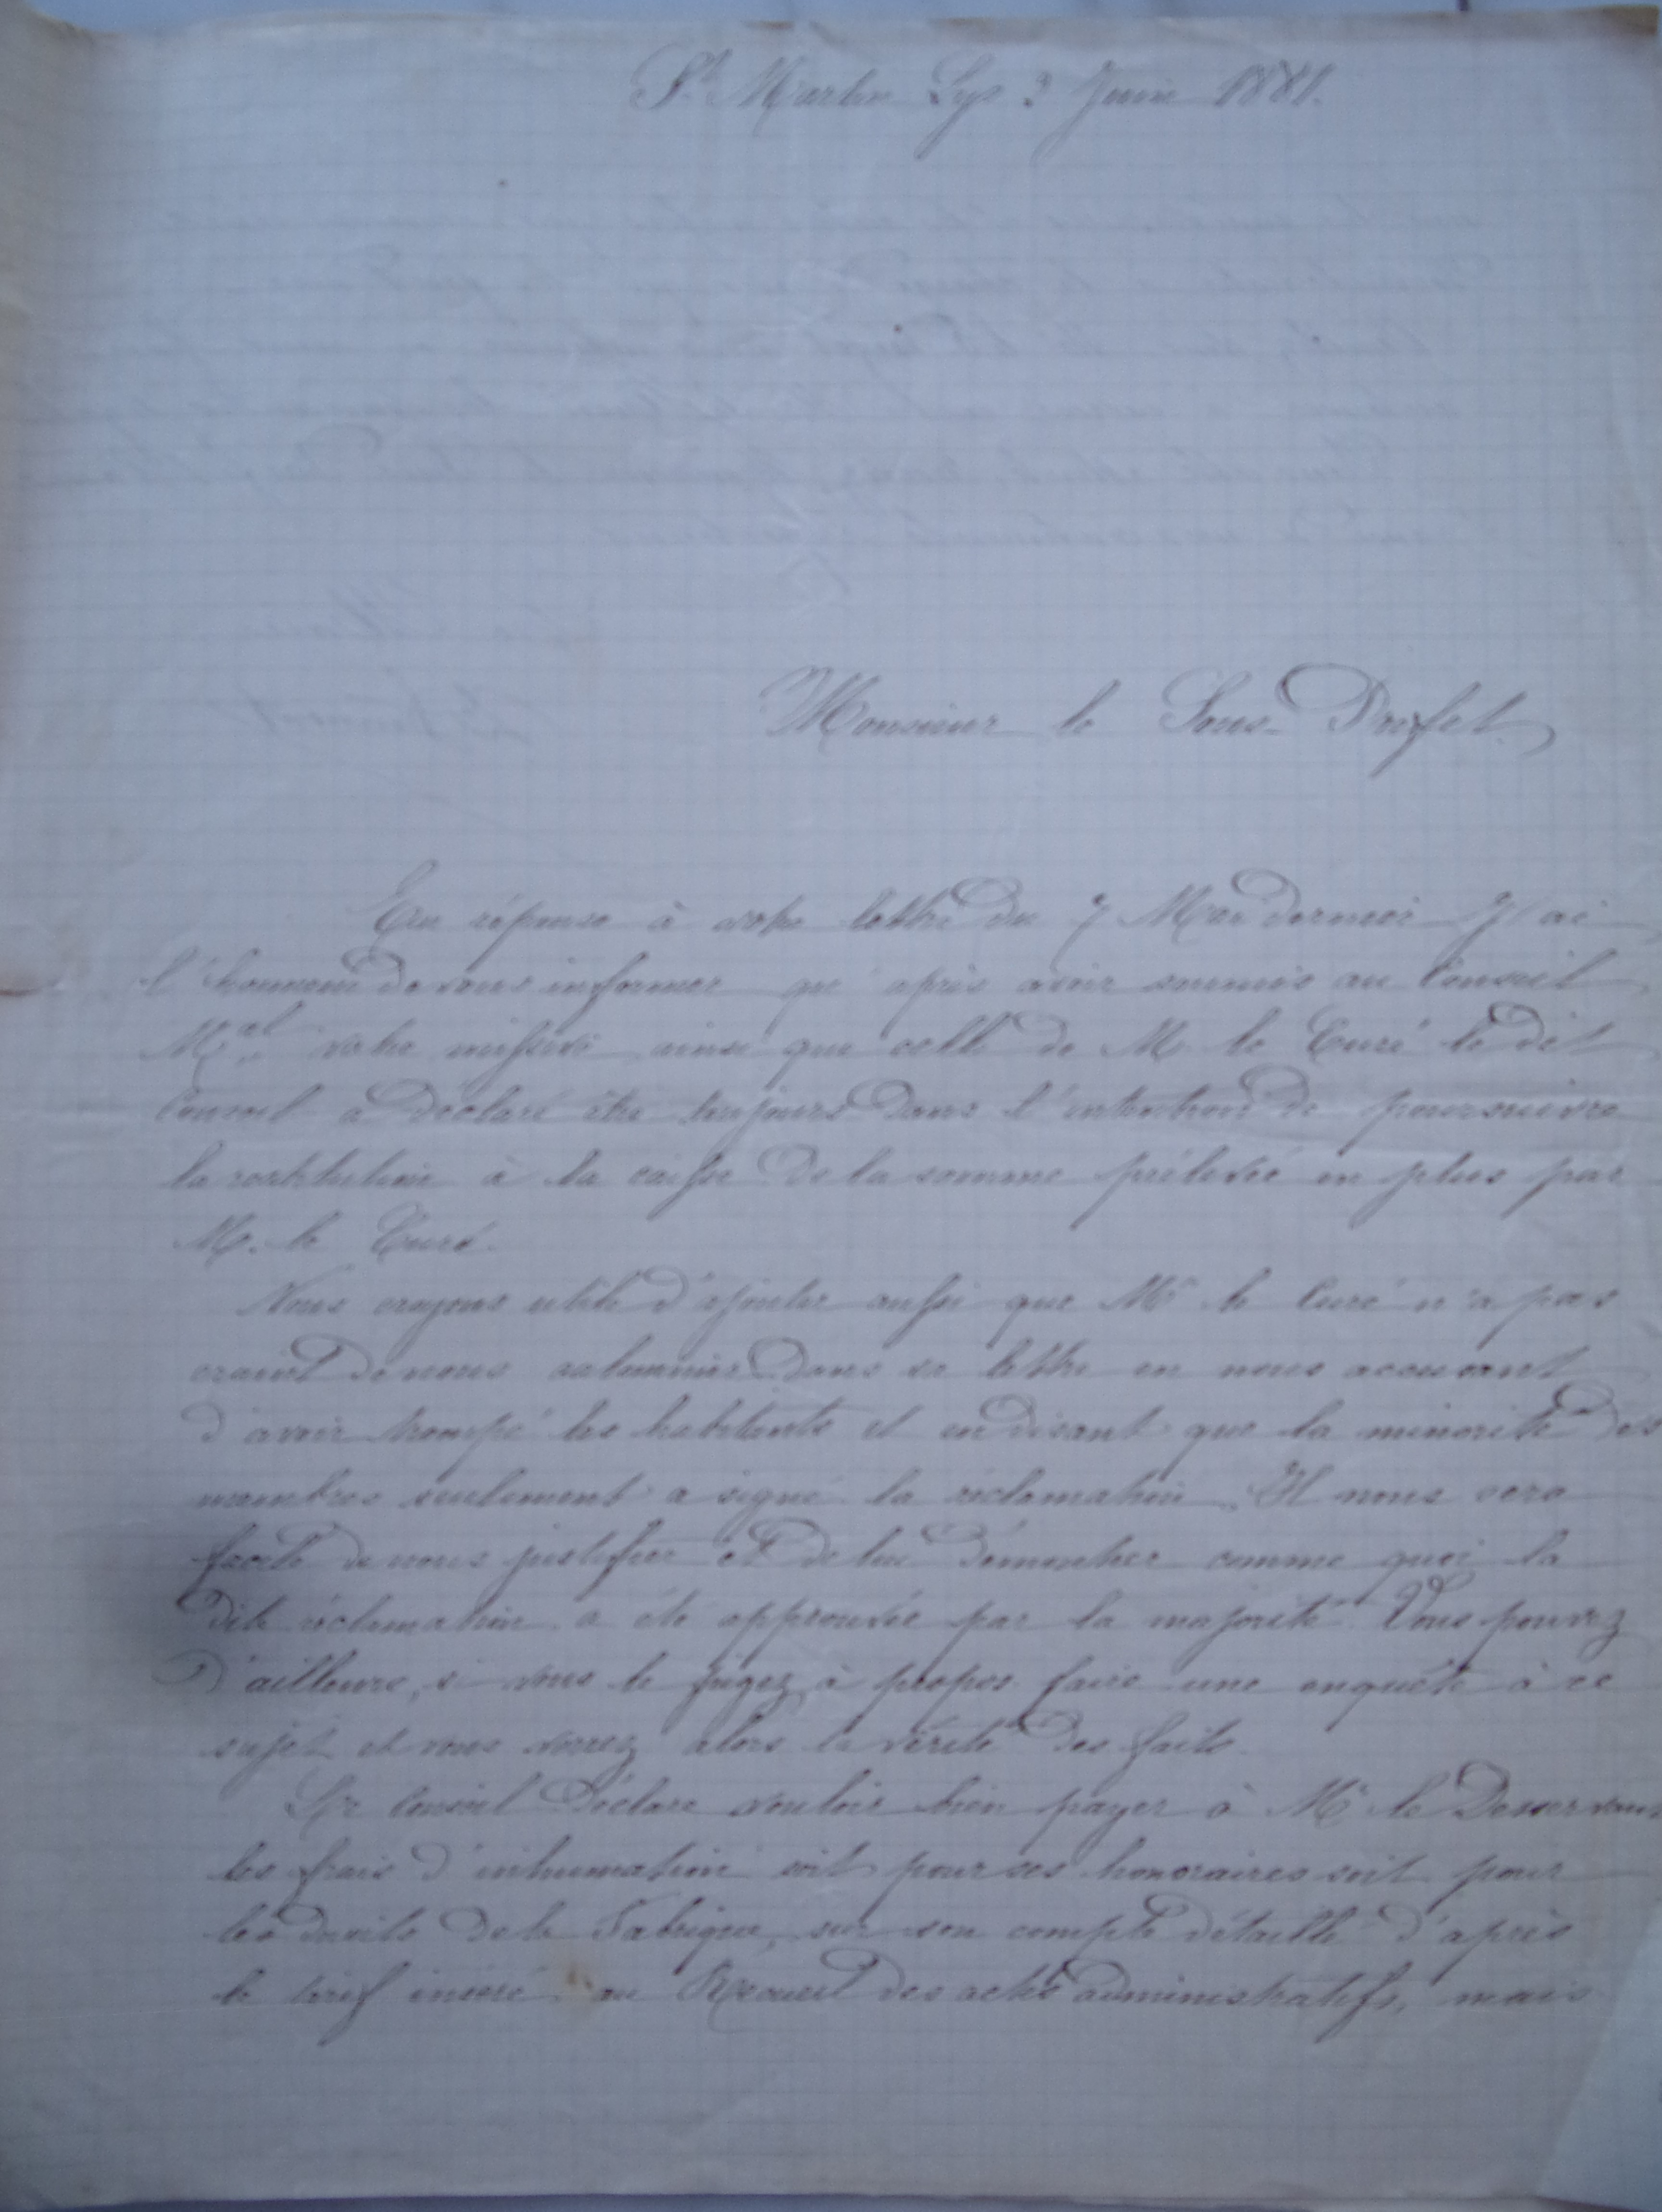 St Martin Lys 3 Juin 1881.
Monsieur le Sous-Préfet
En réponse à votre lettre du 7 Mai dernier J'ai
l'honneur de vous informer qu'après avoir soumis au Conseil
Mal votre missive ainsi que celle de M le Curé le dit
Conseil a déclaré être toujours dans l'intention de poursuivre
la restitution à la caisse de la somme prélevée en plus par
M. le Curé.
Nous croyons utile d'ajouter aussi que Mr le Curé n'a pas
craint de nous calomnier dans sa lettre en nous accusant
d'avoir trompé les habitants et en disant que la minorité des
membres seulement a signé la réclamation. Il nous sera
facile de nous justifier et de lui démontrer comme quoi la
dite réclamation a été approuvée par la majorité. Vous pouvez
d'ailleurs, si vous le jugez à propos faire une enquête à ce
sujet et vous verrez alors la vérité des faits.
Le Conseil déclare vouloir bien payer à Mr le Desservant
les frais d'inhumation soit pour ses honoraires soit pour
les droits de la Fabrique, sur son compte détaillé d'après
le tarif inséré au Recueil des actes administratifs, mais